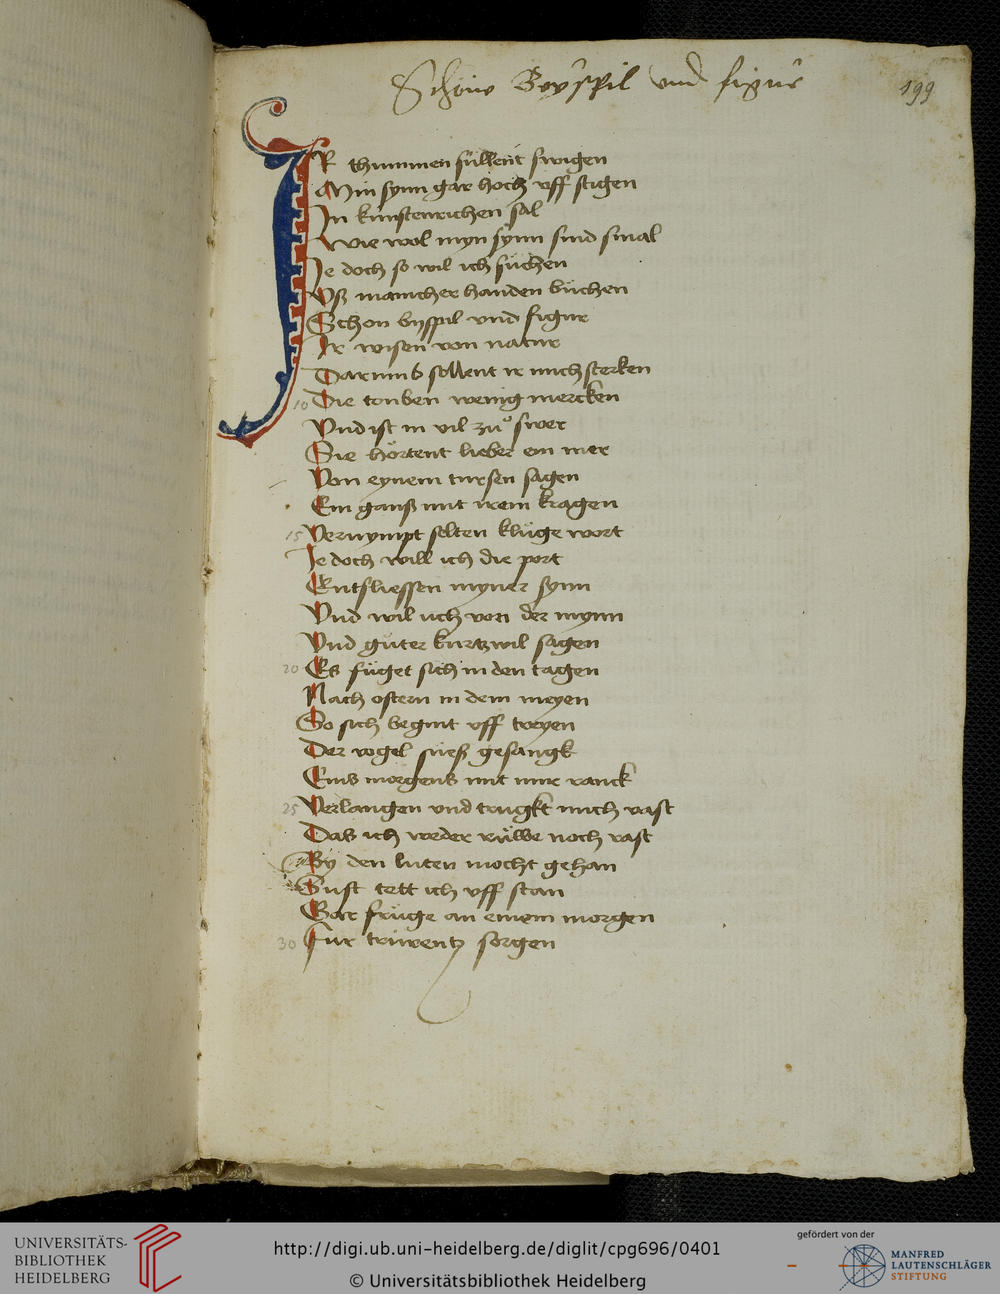 Schöne Beyspil und figur
199
IR thummen süllent swigen
Min synn gar hoch uff stigen
In kunstenrichen sal
Wie wol myn synn sind smal
Je doch so wil ich suchen
Uß mancher handen büchen
Schon byspil und figur
Ir wisen von natur
Darumb sollent ir mich sterken
10 Die touben wenig mercken
Und ist in vil zuͦ swer
Sie hörtent lieber ein mer
Von eynem tursen sagen
Ein ganß mit irem kragen
15 Vernympt selten kluge wort
Je doch will ich die port
Entsliessen myner synn
Und wil uch von der mynn
Und guter kurtzwil sagen
20 Es füget sich in den tagen
Nach ostern in dem meyen
So sich begint uff
Der vogel sueß gesangk
Eins morgens mit mir ranck
25 Verlangen und trugkt mich vast
Das ich weder ruwe noch rast
By den luten mocht gehan
Sust tett ich uff stan
Gar fruge an einem morgen
30 Fur truwentz sorgen
UNIVERSITÄTS-
BIBLIOTHEK
HEIDELBERG
http://digi.ub.uni-heidelberg.de/diglit/cpg696/0401
© Universitätsbibliothek Heidelberg
gefördert von der
MANFRED
LAUTENSCHLÄGER
STIFTUNG